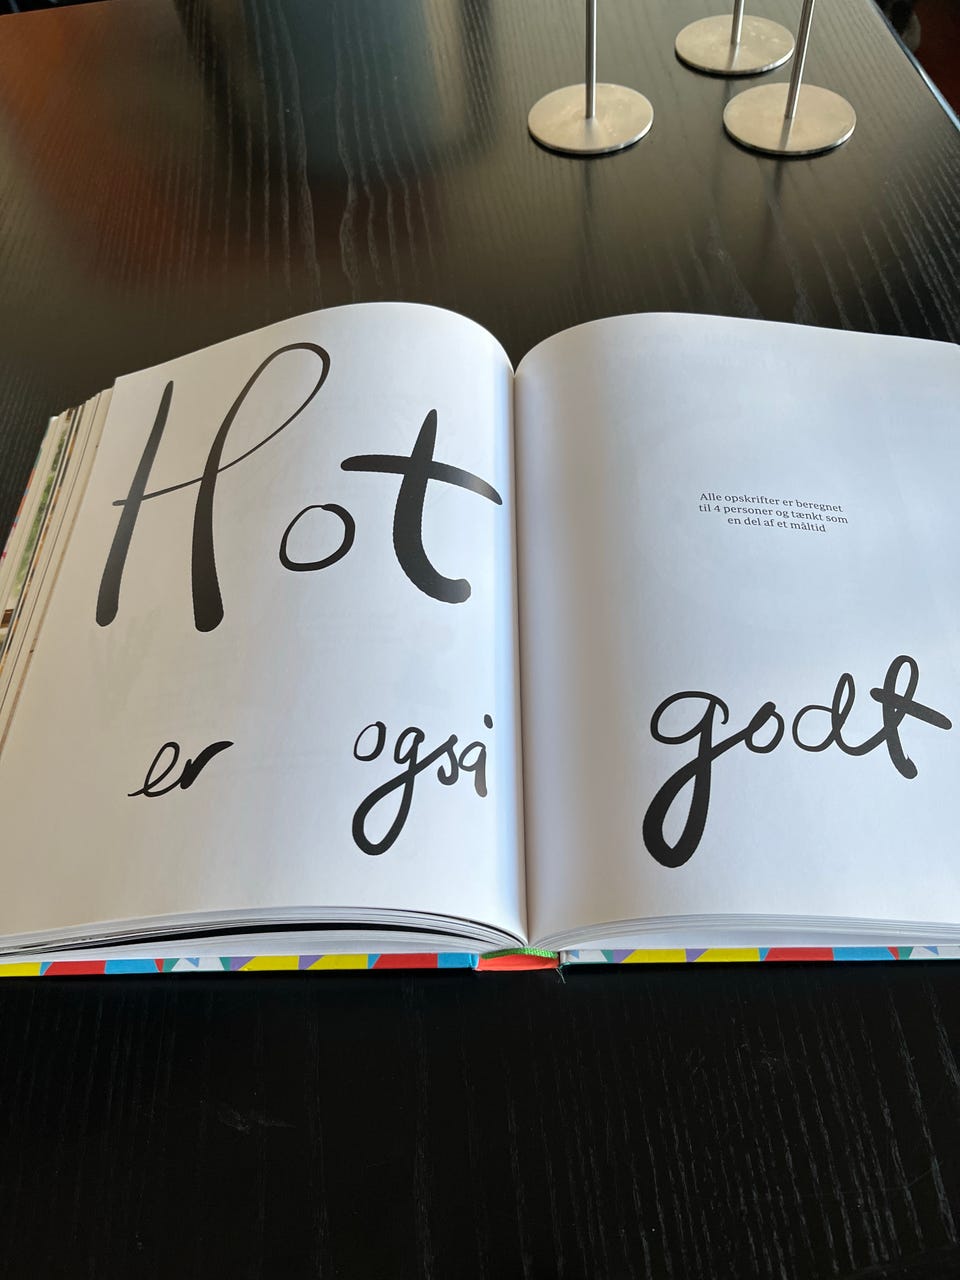 Hot
er også
Alle opskrifter er beregnet
til 4 personer og tænkt som
en del af et måltid
godt